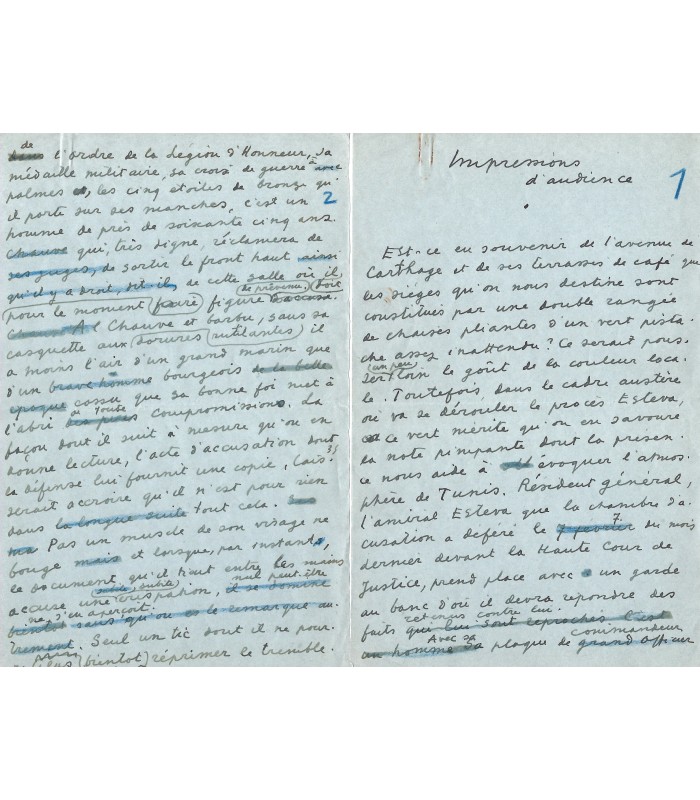 Impressions
d'audience
1
Est-ce en souvenir de l'avenue de
Carthage et de ses terrasses de café que
les sièges qu'on nous destine sont
constitués par une double rangée
de chaises pliantes d'un vert pista-
che assez inattendu? Ce serait pous-
(un peu)
ser loin le goût de la couleur loca-
le. Toutefois, dans le cadre austère
où va se dérouler le procès Esteva,
ce vert mérite qu'on en savoure
la note pimpante dont la présen-
ce nous aide à évoquer l'atmos-
phère de Tunis. Résident général,
l'amiral Esteva que la chambre d'a-
cusation a déféré le 7 février 7 du mois
dernier devant la Haute Cour de
Justice, prend place avec un garde
au banc d'où il devra répondre des
retenus contre lui.
faits qui lui sont reprochés. C'est
Avec sa commandeur
un homme Sa plaque de grand officier
de
dans l'ordre de la Légion d'Honneur, sa
médaille militaire, sa croix de guerre à
palmes et, les cinq étoiles de bronze qu'
2
il porte sur ses manches, c'est un
homme de près de soixante cinq ans.
Chauve qui, très digne, réclamera de
ses juges, de sortir le front haut ainsi
qu'il y a droit, dit-il, de cette salle où il
de prévenu. doit
pour le moment (faire) figure
A Chauve et barbu, sans sa
casquette aux dorures (rutilantes) il
a moins l'air d'un grand marin que
d'un brave homme bourgeois de la belle
époque cossu que sa bonne foi met à
de toute
l'abri des pires compromissions. La
façon dont il suit à mesure qu'on en
donne lecture, l'acte d'accusation dont
la défense lui fournit une copie, lais-
serait accroire qu'il n'est pour rien
dans la longue suite tout cela.
Pas un muscle de son visage ne
bouge mais et lorsque, par instants,
le document, qu'il tient entre les mains
subite, nul peut-être
accuse une crispation, il se domine
ne s'en aperçoit.
bientôt sans qu'on le remarque au-
trement. Seul un tic dont il ne pour-
plus (bientôt) réprimer le tremble-